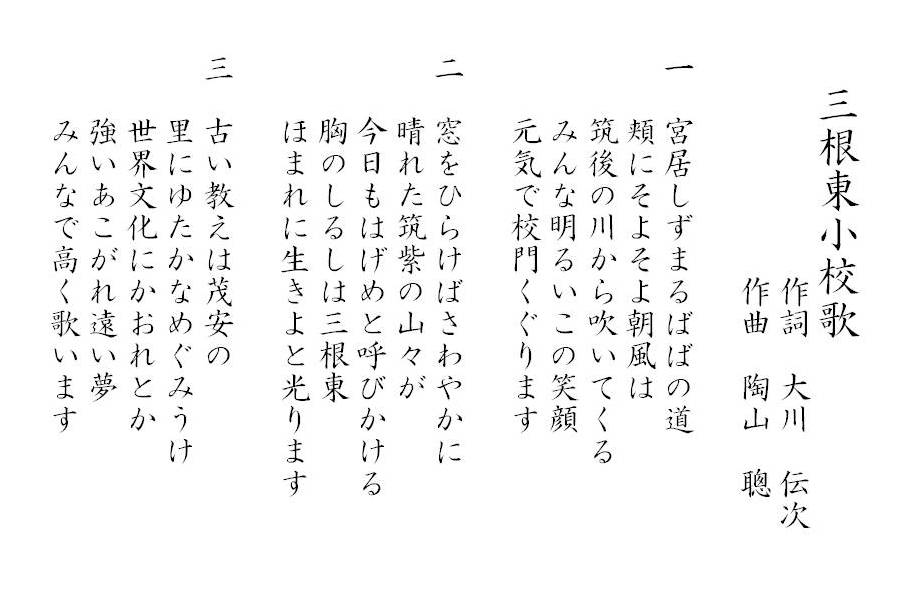 三根東小校歌
作詞　大川　伝次
作曲　陶山　聰
一　宮居しずまるばばの道
頬にそよそよ朝風は
筑後の川から吹いてくる
みんな明るいこの笑顔
元気で校門くぐります
二　窓をひらけばさわやかに
晴れた筑紫の山々が
今日もはげめと呼びかける
胸のしるしは三根東
ほまれに生きよと光ります
三　古い教えは茂安の
里にゆたかなめぐみうけ
世界文化にかおれとか
強いあこがれ遠い夢
みんなで高く歌います